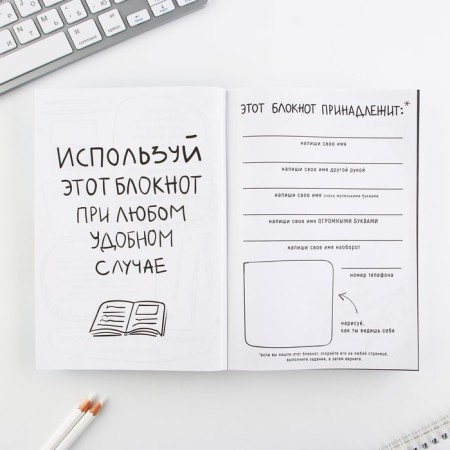 ИСПОЛЬЗУЙ
ЭТОТ БЛОКНОТ
ПРИ ЛЮБОМ
УДОБНОМ
СЛУЧАЕ
ЭТОТ БЛОКНОТ ПРИНАДЛЕЖИТ:*
напиши свое имя
напиши свое имя другой рукой
напиши свое имя очень маленькими буквами
напиши свое имя ОГРОМНЫМИ БУКВАМИ
напиши свое имя наоборот
номер телефона
нарисуй,
как ты видишь себя
*если вы нашли этот блокнот, откройте его на любой странице,
выполните задание, а затем верните.